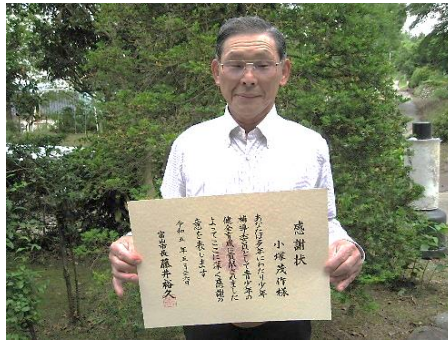 感謝状
小塚茂作様
あなたは多年にわたり少年
補導委員として青少年の
健全育成に貢献されました
よってここに深く感謝の
意を表します
令和五年五月二六日
富山市長 藤井裕久